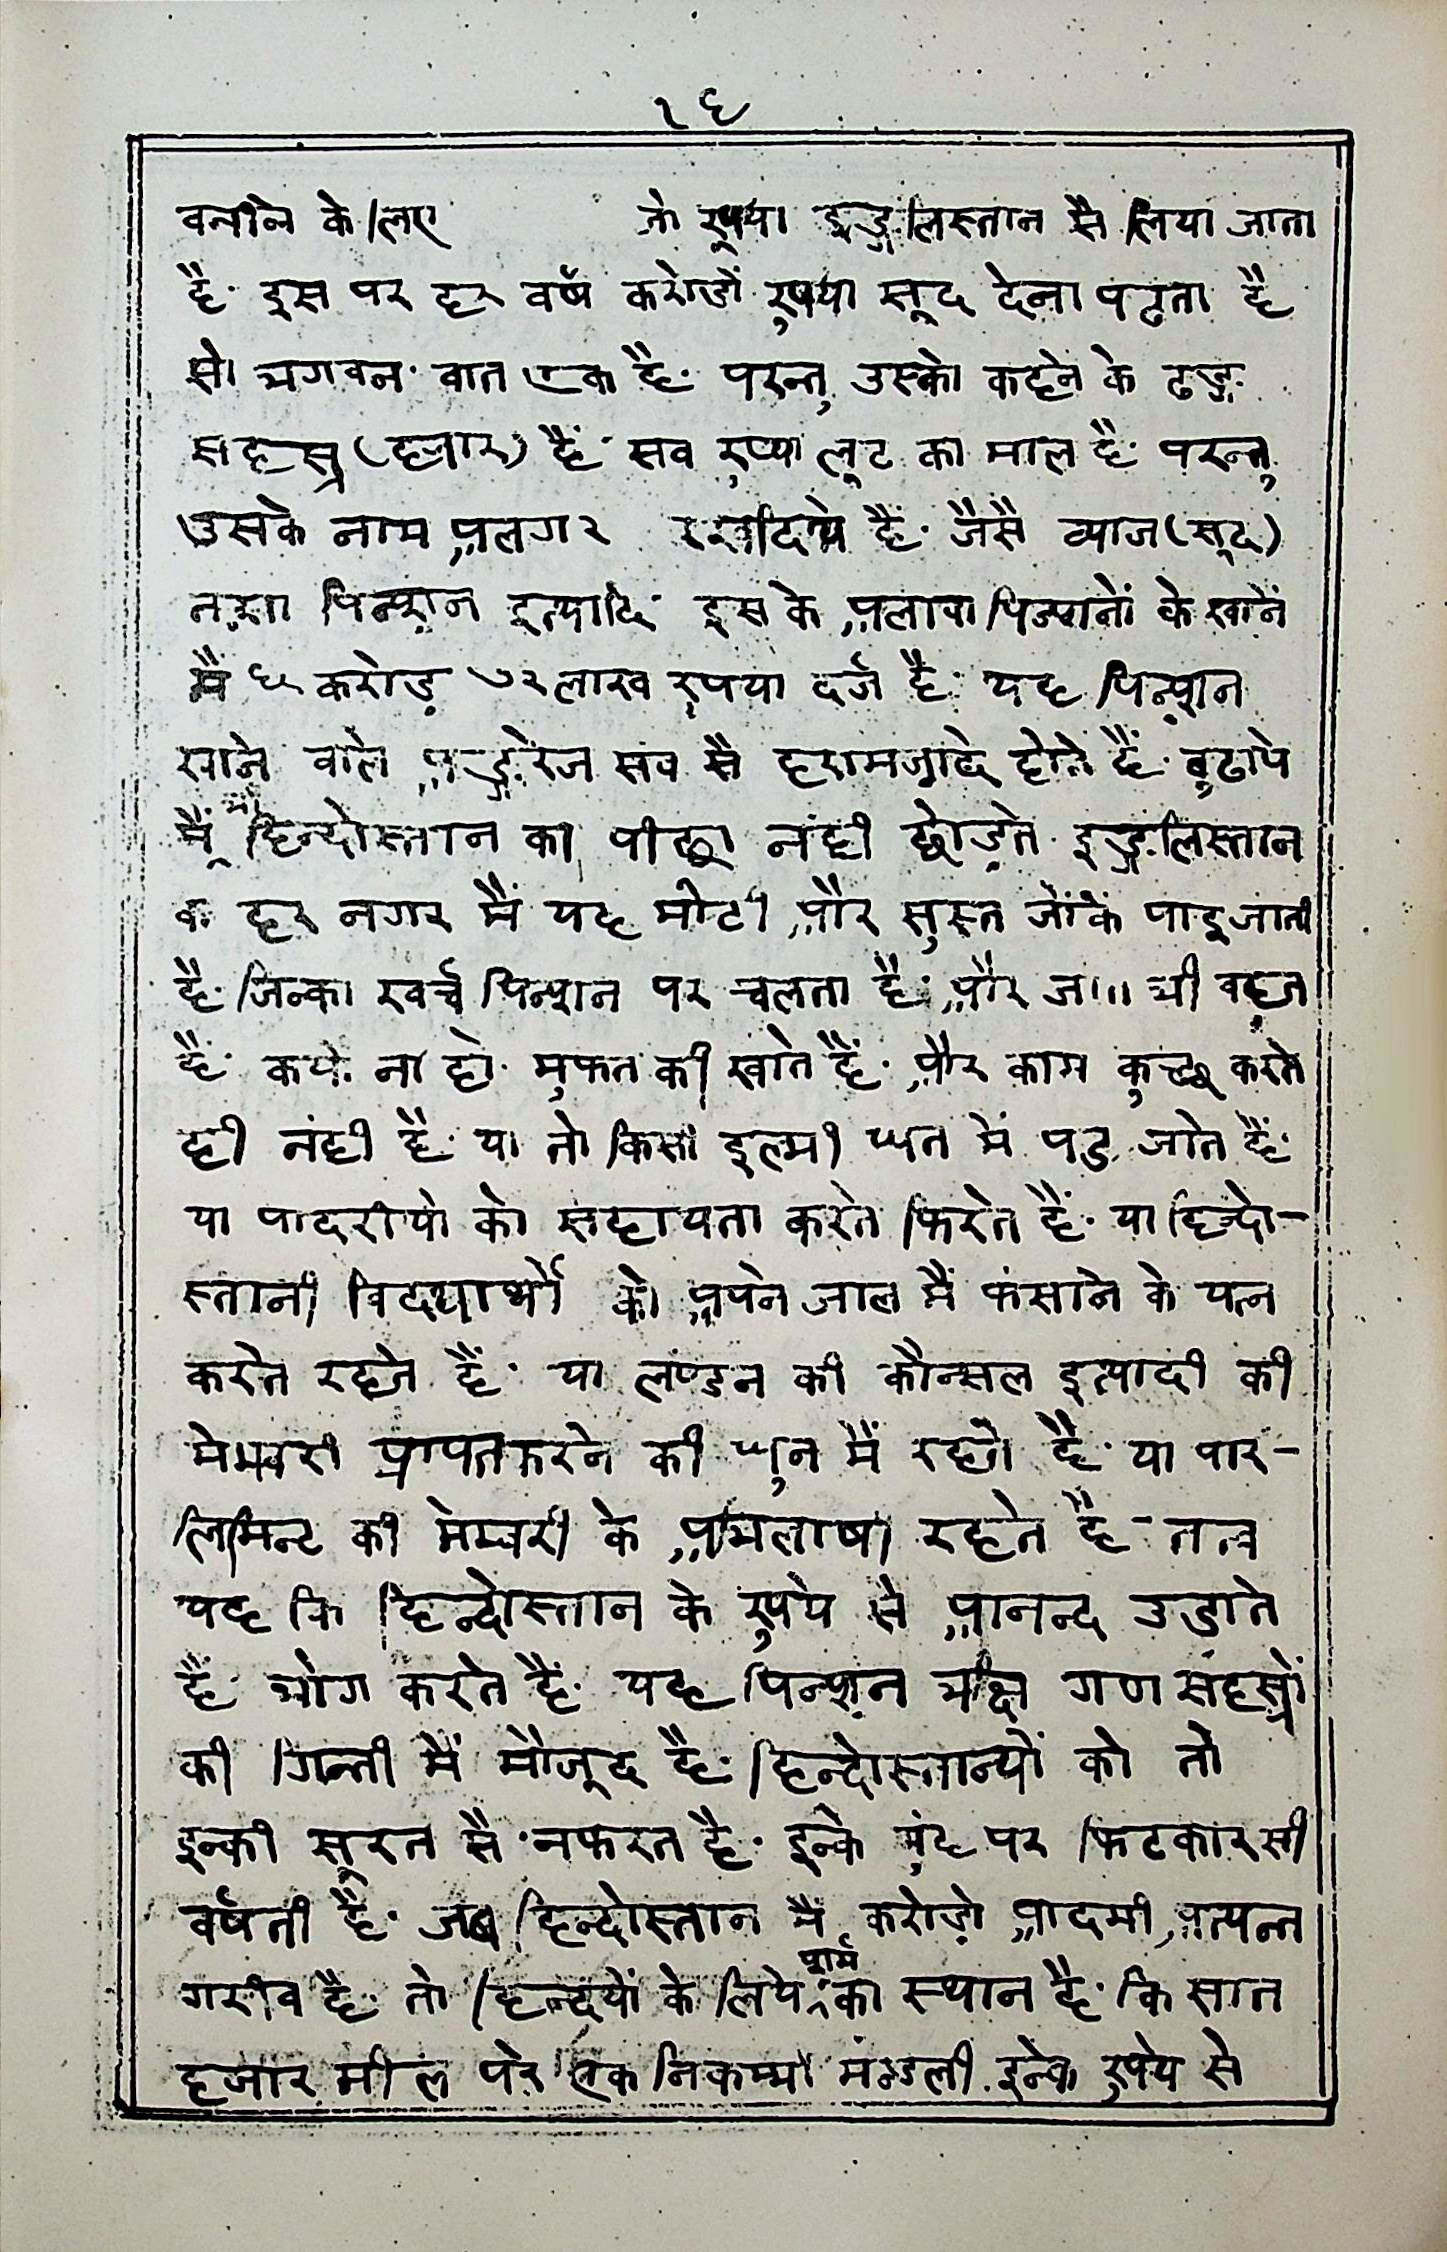 १६
वनाने के लिए जो रुपया इङ्गलिस्तान सै लिया जाता
है· इस पर हर वर्ष करोडों रुपया सूद देना पढता है
सो भगवन· वात एक है· परन्तु उस्को कहने के ढङ्ग
सहस्र (हजार) हैं· सव रुप्या लूट का माल है· परन्तु
उसके नाम अलग२ रखदिये हैं· जैसै व्याज (सूद)
नफा पिन्शन इत्यादि इस के अलावा पिन्शनों के खाने
मै करोड़ ७२ लाख रुपया दर्ज है· यह पिन्शन
खाने वाले अङ्गरेज सव सै हरामजादे होते हैं· बुढापे
मैं भी हिन्दोस्तान का पीछा नंही छोड़ते इङ्गलिस्तान
के हर नगर मैं यह मोटी और सुस्त जोंकें पाइ जाती
है· जिन्का खर्च पिन्शन पर चलता है· और भी वहुत
हैं· कयों ना हो· मुफत की खाते हैं· और काम कुच्छ करते
ही नंही है· या तो किसी इल्मी धुन में पड जाते हैं·
या पादरीयो को सहायता करते फिरते हैं· या हिन्दो-
स्तानी विदयार्थीओं को अपने जाल मैं फंसाने के यत्न
करते रहते हैं· या लंण्डन की कौन्सल इत्यादी की
मेम्बरी प्रापत करने की धुन मैं रहते है· या पार-
लिमिन्ट की मेम्वरी के अभिलाषी रहते है-
यह कि हिन्दोस्तान के रुपये से आनन्द उडाते
हैं· भोग करते हैं· यह पिन्शन भक्षि गण संहस्रों
की गिन्ती मैं मौजूद है· हिन्दोस्तान्यों को तो
इन्की सूरत सै नफरत है· इन्के मुंह पर फिटकार सी
वर्षती है· जब हिन्दोस्तान मै करोडो आदमी अत्यन्त
गरीव है· तो हिन्दयों के लिये शर्म का स्थान है· कि सात
हजार मील परे एक निकम्मी मंन्डली इन्के रुपये से